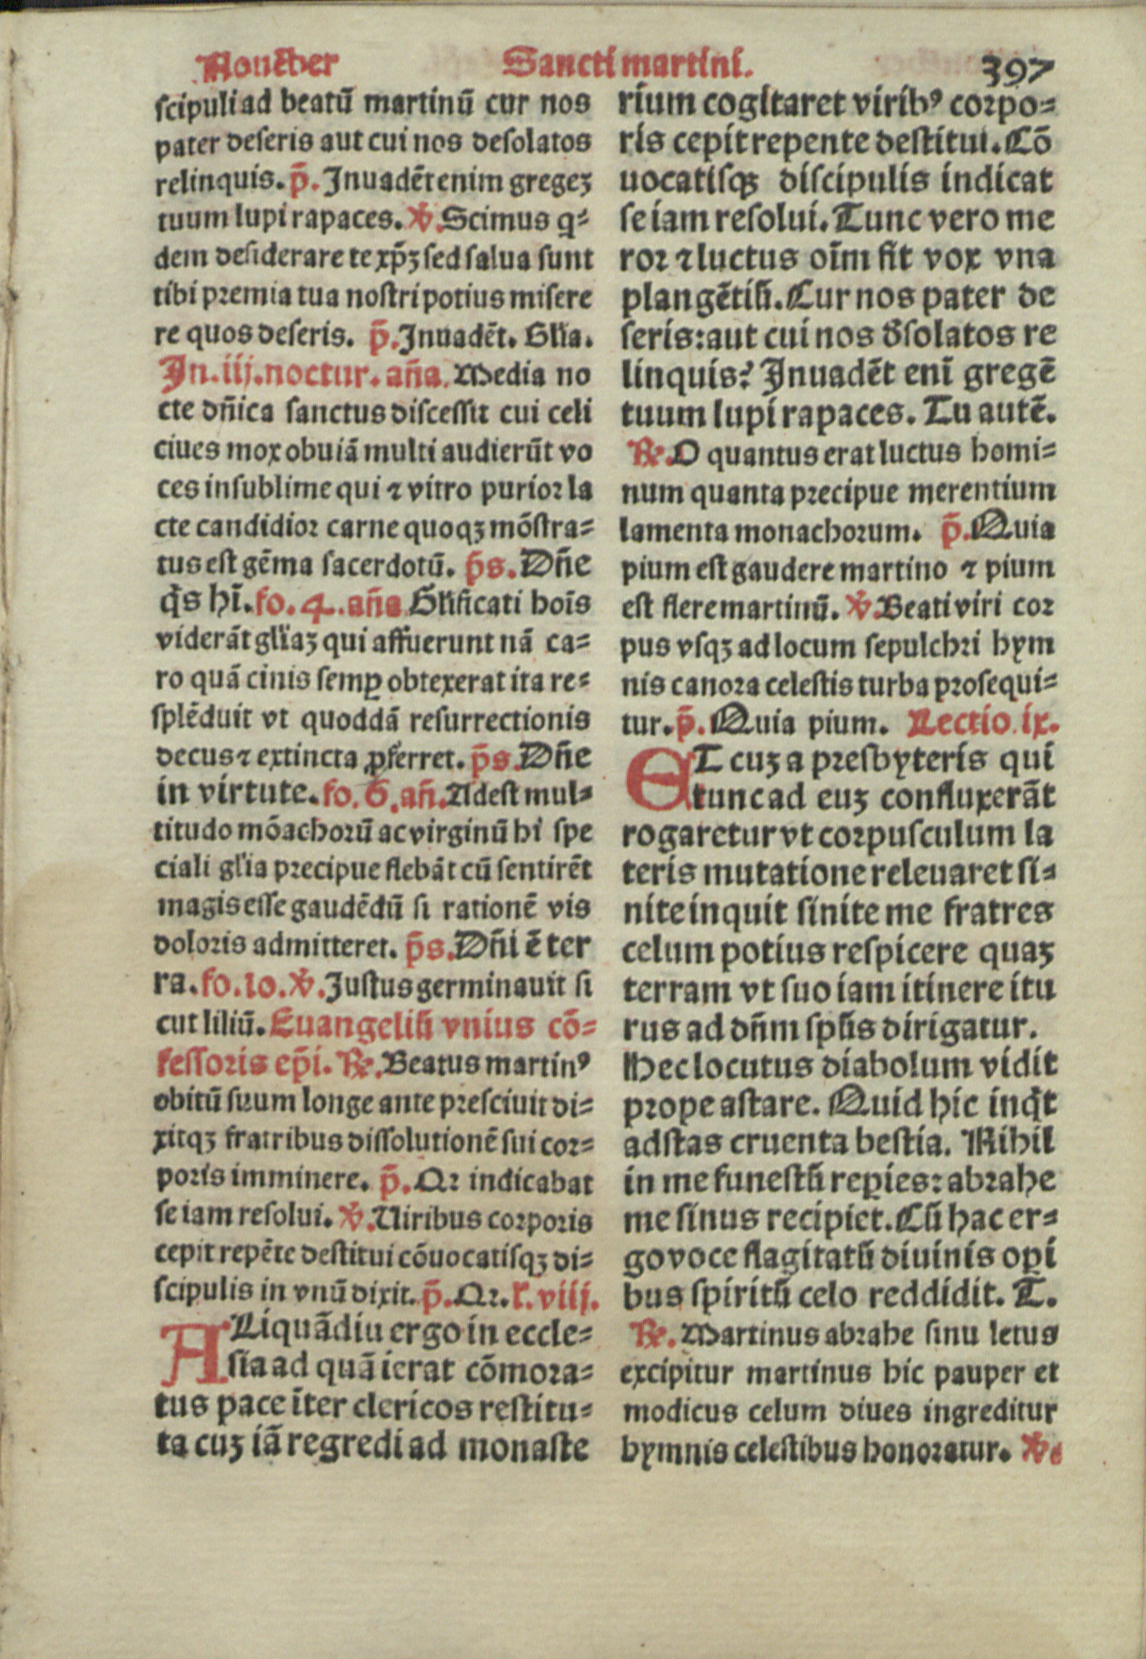 Nouēber Sancti martini. 397
scipuli ad beatū martinū cur nos
pater deseris aut cui nos desolatos
relinquis. p̄. Inuadēt enim gregeꝫ
tuum lupi rapaces. ℣. Scimus q̇⸗
dem desiderare te xp̄ꝫ sed salua sunt
tibi premia tua nostri potius misere
re quos deseris. p̄. Inuadēt. Gl̄ia.
In .iij. noctur. an̄a. Media no
cte dn̄ica sanctus discessit cui celi
ciues mox obuiā multi audierūt vo
ces in sublime qui ⁊ vitro purior la
cte candidior carne quoqꝫ mōstra⸗
tus est gēma sacerdotū. p̄s. Dn̄e
q̇s hī. fo. 4. an̄a Gl̄ificati hoīs
viderāt gl̄iaꝫ qui affuerunt nā ca⸗
ro quā cinis semꝑ obtexerat ita re⸗
splēduit vt quoddā resurrectionis
decus ⁊ extincta ꝓferret. p̄s. Dn̄e
in virtute. fo. 6. an̄. Adest mul⸗
titudo mōachorū ac virginū hī spe
ciali gl̄ia precipue flebāt cū sentirēt
magis esse gaudēdū si rationē vis
doloris admitteret. p̄s. Dn̄i ē ter
ra. fo. 10. ℣. Justus germinauit si
cut liliū. Euangeliū vnius cō⸗
fessoris ep̄i. ℟. Beatus martinꝰ
obitū suum longe ante presciuit di⸗
xitqꝫ fratribus dissolutionē sui cor⸗
poris imminere. p̄. Qr indicabat
se iam resolui. ℣. Uiribus corporis
cepit repēte destitui cōuocatisqꝫ di⸗
scipulis in vnū dixit. p̄. Qr. ł. viij.
ALiquādiu ergo in eccle⸗
sia ad quā ierat cōmora⸗
tus pace īter clericos restitu⸗
ta cuꝫ iā regredi ad monaste
rium cogitaret viribꝰ corpo⸗
ris cepit repente destitui. Cō
uocatisqꝫ discipulis indicat
se iam resolui. Tunc vero me
ror ⁊ luctus oīm fit vox vna
plangētiū. Cur nos pater de
seris: aut cui nos d̄solatos re
linquis? Inuadēt enī gregē
tuum lupi rapaces. Tu autē.
℟. O quantus erat luctus homi⸗
num quanta precipue merentium
lamenta monachorum. p̄. Quia
pium est gaudere martino ⁊ pium
est flere martinū. ℣. Beati viri cor
pus vsqꝫ ad locum sepulchri hym
nis canora celestis turba prosequi⸗
tur. p̄. Quia pium. Lectio .ix.
ET cuꝫ a presbyteris qui
tunc ad euꝫ confluxerāt
rogaretur vt corpusculum la
teris mutatione releuaret si⸗
nite inquit sinite me fratres
celum potius respicere quaꝫ
terram vt suo iam itinere itu
rus ad dn̄m sp̄us dirigatur.
Hec locutus diabolum vidit
prope astare. Quid hic inq̇t
adstas cruenta bestia. Nihil
in me funestū reꝑies: abrahe
me sinus recipiet. Cū hac er⸗
go voce flagitatū diuinis oꝑi
bus spiritū celo reddidit. T.
℟. Martinus abrahe sinu letus
excipitur martinus hic pauper et
modicus celum diues ingreditur
hymnis celestibus honoratur. ℣.